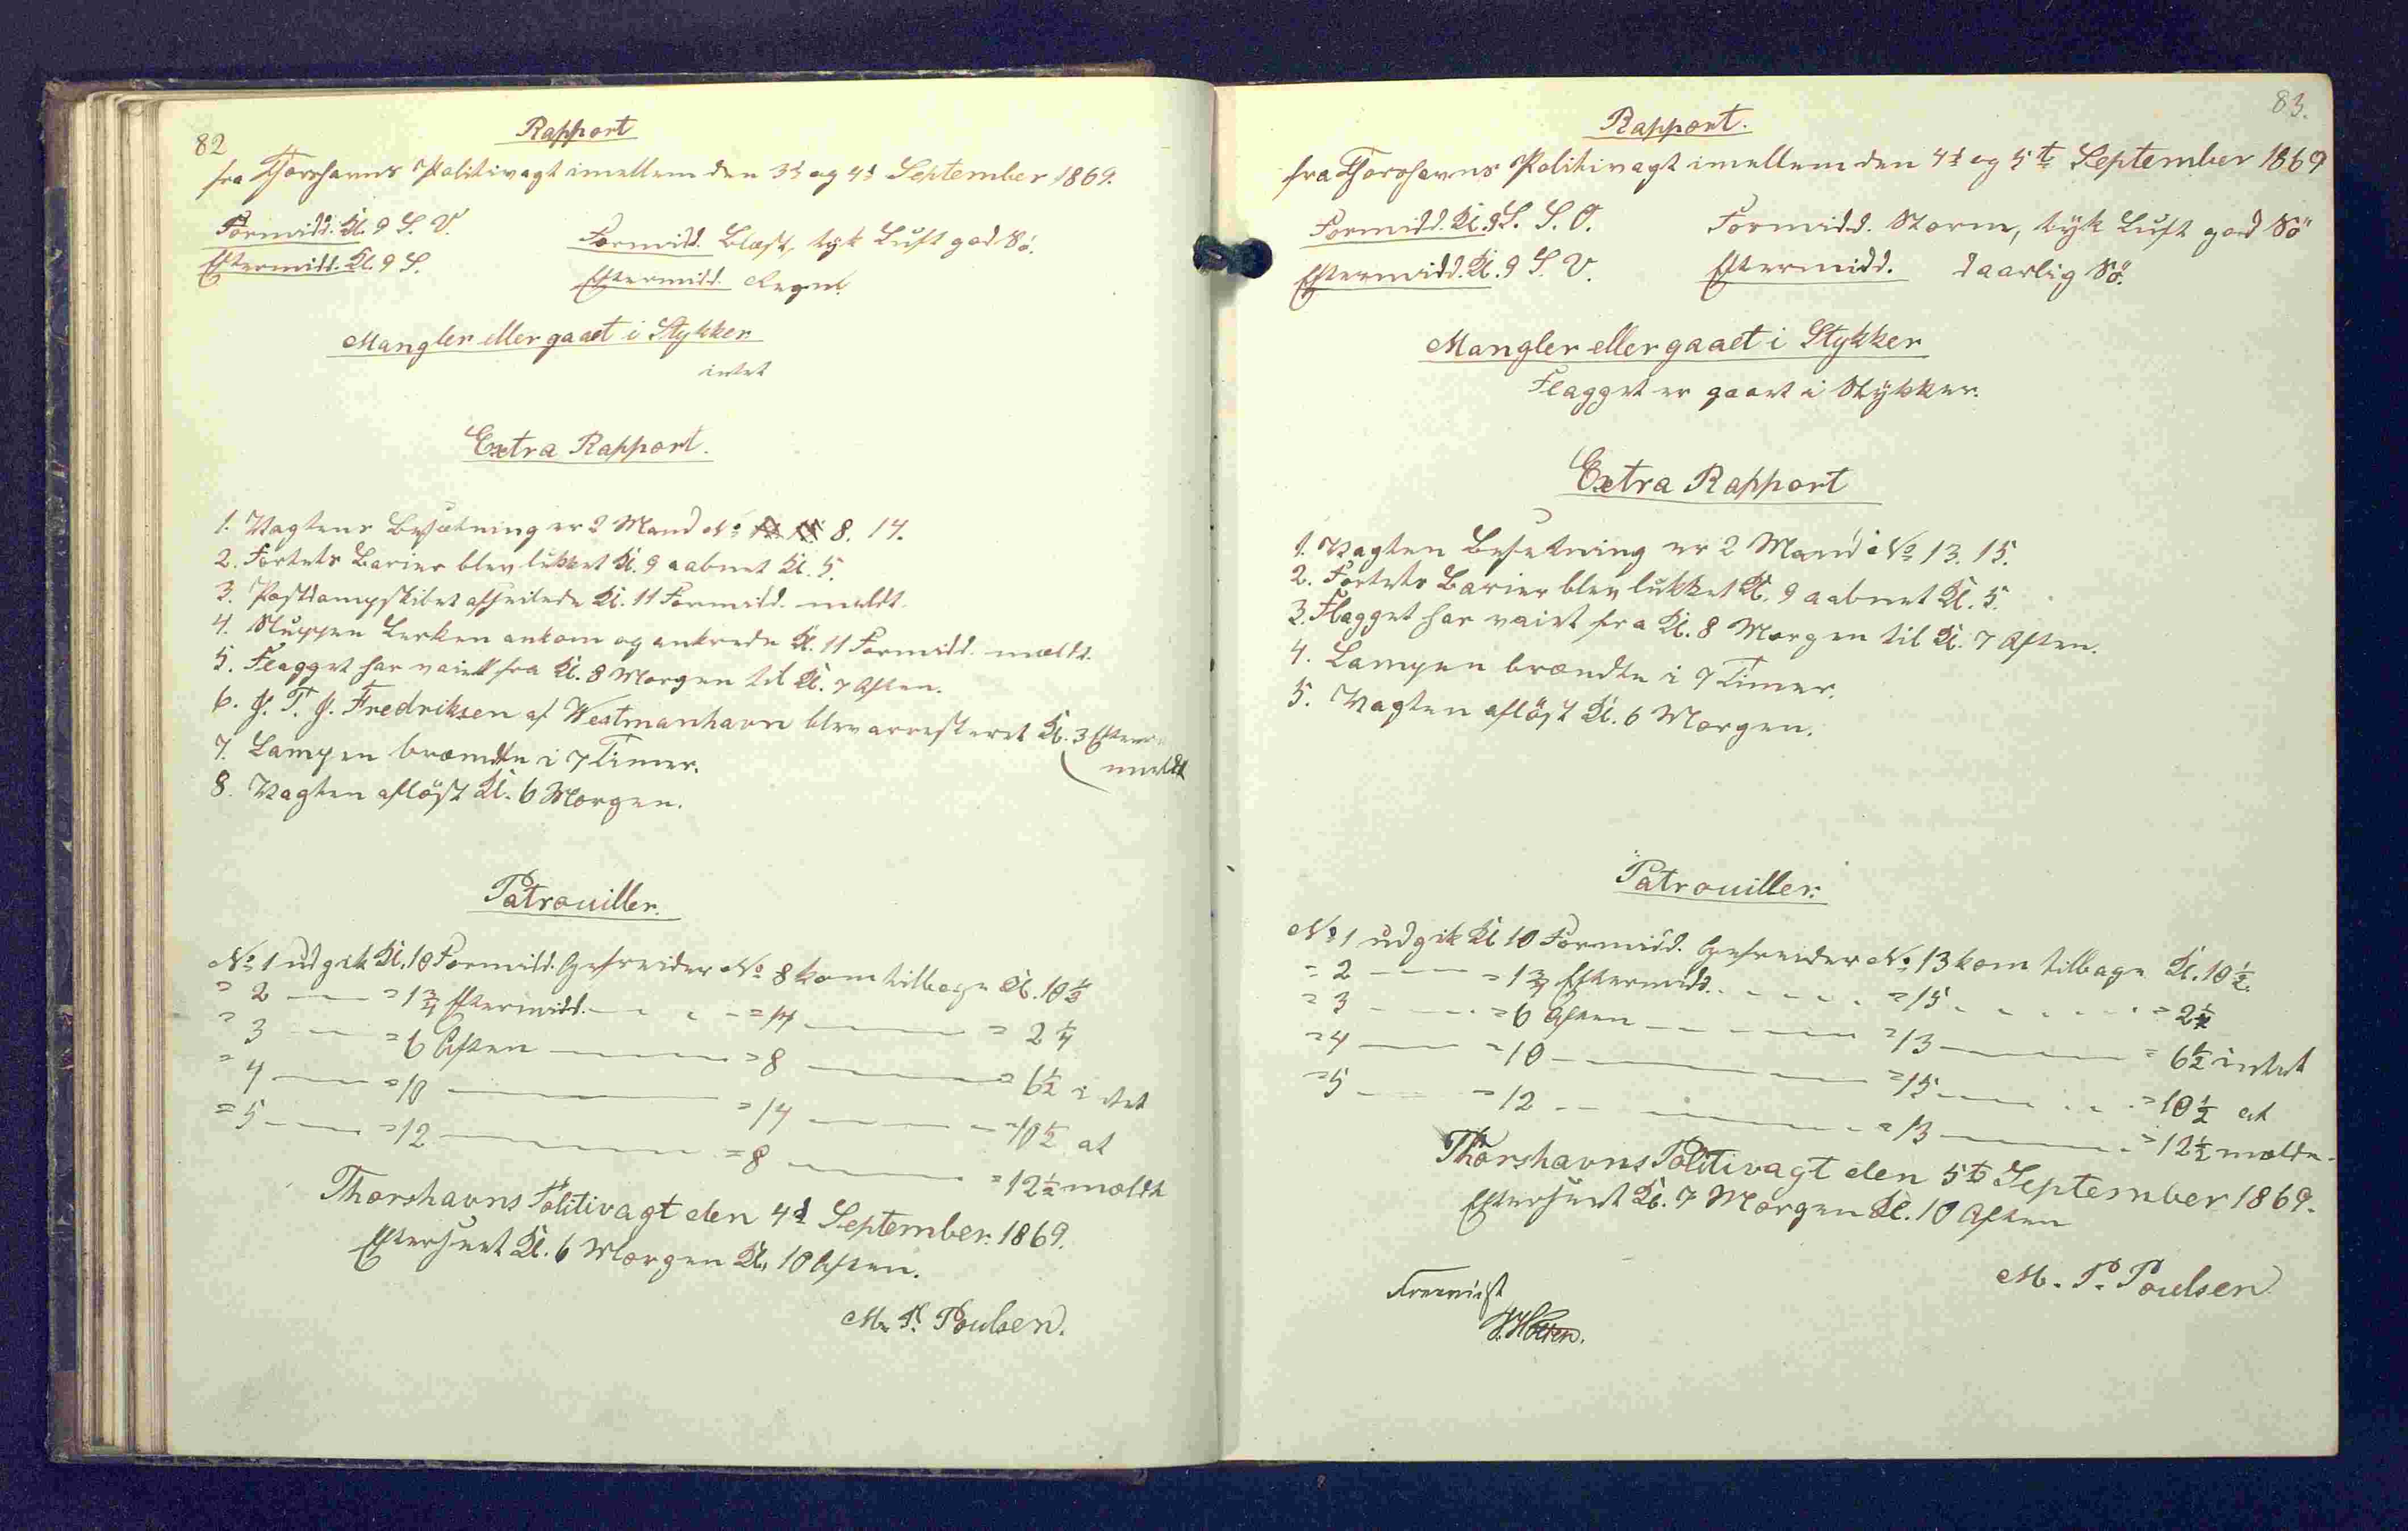 82
Rapport
fra Thorshavns Politivagt imellem den 3d og 4d September 1869.
Formidd. Kl. 9 S. V.
Formidd. Blæst, tyk Luft god Sö.
Eftermidd. Kl. 9 S.
Eftermidd. Regn.
Mangler eller gaaet i Stykker
intet
Extra Rapport.
1. Vagtens Besætning er 2 Mand No 8. 14.
2. Fortets Barier blev lukket Kl. 9 aabnet Kl. 5.
3. Postdampskibet afseilede Kl. 11 Formidd. meldt.
4. Sluppen Lerken ankom og ankrede Kl. 11 Formidd. meldt.
5. Flagget har vaiet fra Kl. 8 Morgen til Kl. 7 Aften.
6. J. T. J. Fredriksen af Westmanhavn blev arresteret Kl. 3 Efterm
meldt
7. Lampen brændte i 7 Timer.
8. Vagten aflöst Kl. 6 Morgen.
Patrouiller.
No 1 udgik Kl. 10 Formidd. Gefreider No 8 kom tilbage Kl. 10 1/2
= 2 — = 1 3/4 Eftermidd. — = 14 — = 2 1/4
= 3 — = 6 Aften — = 8 — = 6 1/2 intet
= 4 — = 10 — = 14 — = 10 1/2 at
= 5 — = 12 — = 8 — = 12 1/2 meldt
Thorshavns Politivagt den 4d September 1869.
Efterseet Kl. 6 Morgen Kl. 10 Aften.
M. P. Poulsen.
83.
Rapport.
fra Thorshavns Politivagt imellem den 4d og 5te September 1869
Formidd. Kl. 9 S. S. O.
Formidd. Storm, tyk Luft god Sö
Eftermidd. Kl. 9 S. V.
Eftermidd. daarlig Sö.
Mangler eller gaaet i Stykker
Flagget er gaaet i Stykker.
Extra Rapport
1. Vagten Besetning er 2 Mand No 13. 15.
2. Fortets Barier blev lukket Kl. 9 aabnet Kl. 5.
3. Flagget har vaiet fra Kl. 8 Morgen til Kl. 7 Aften.
4. Lampen brændte i 7 Timer.
5. Vagten aflöst Kl. 6 Morgen.
Patrouiller.
No 1 udgik Kl 10 Formidd. Gefreider No 13 kom tilbage Kl. 10 1/2.
= 2 — = 1 3/4 Eftermidd. — = 15 — = 2 1/4
= 3 — = 6 Aften — = 13 — = 6 1/2 intet
= 4 — = 10 — = 15 — = 10 1/2 at
= 5 — = 12 — = 13 — = 12 1/2 melde.
Thorshavns Politivagt den 5te September 1869.
Efterseet Kl. 7 Morgen Kl. 10 Aften
M. P. Poulsen
Foreviist